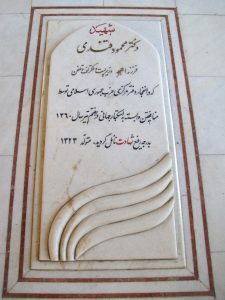 شهید
دکتر محمود قندی
فرزند
که در انفجار دفتر مرکزی حزب جمهوری اسلامی توسط
منافقین وابسته به استکبار جهانی در هفتم تیر سال ۱۳۶۰
به درجه رفیع شهادت نائل گردید. متولد ۱۳۲۳